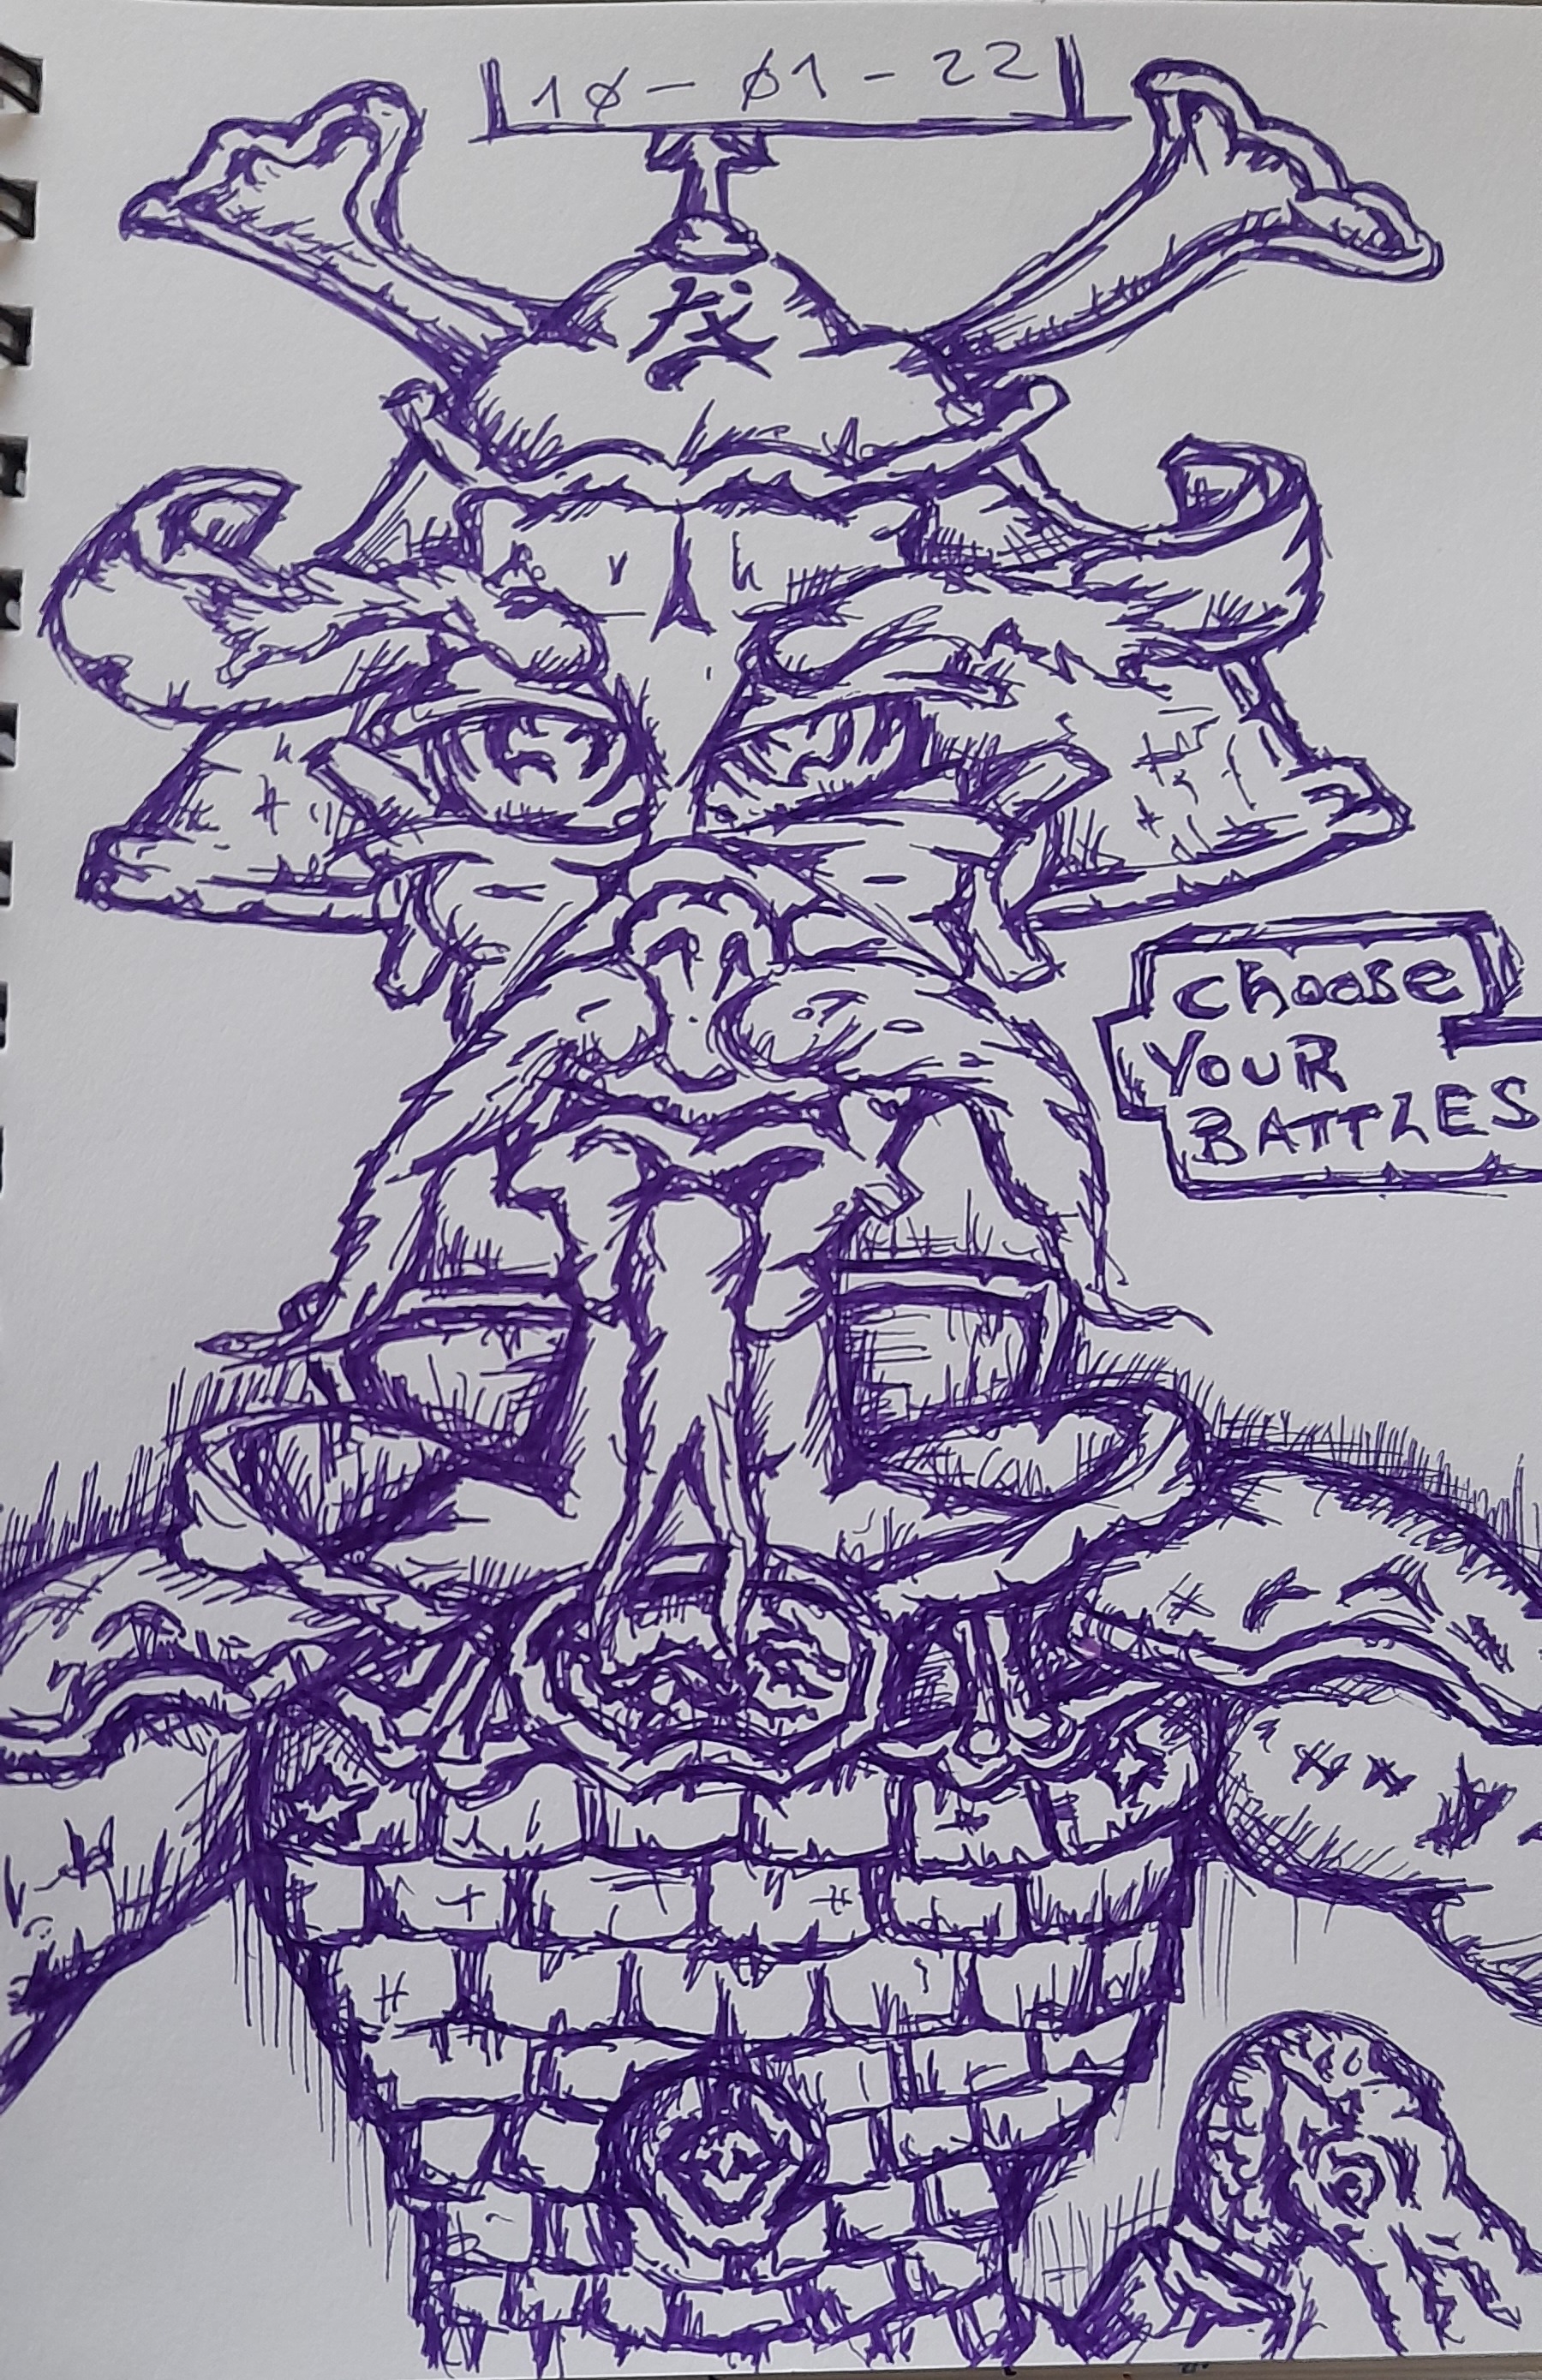 10-01-22
Choose
YOUR
BATTLES